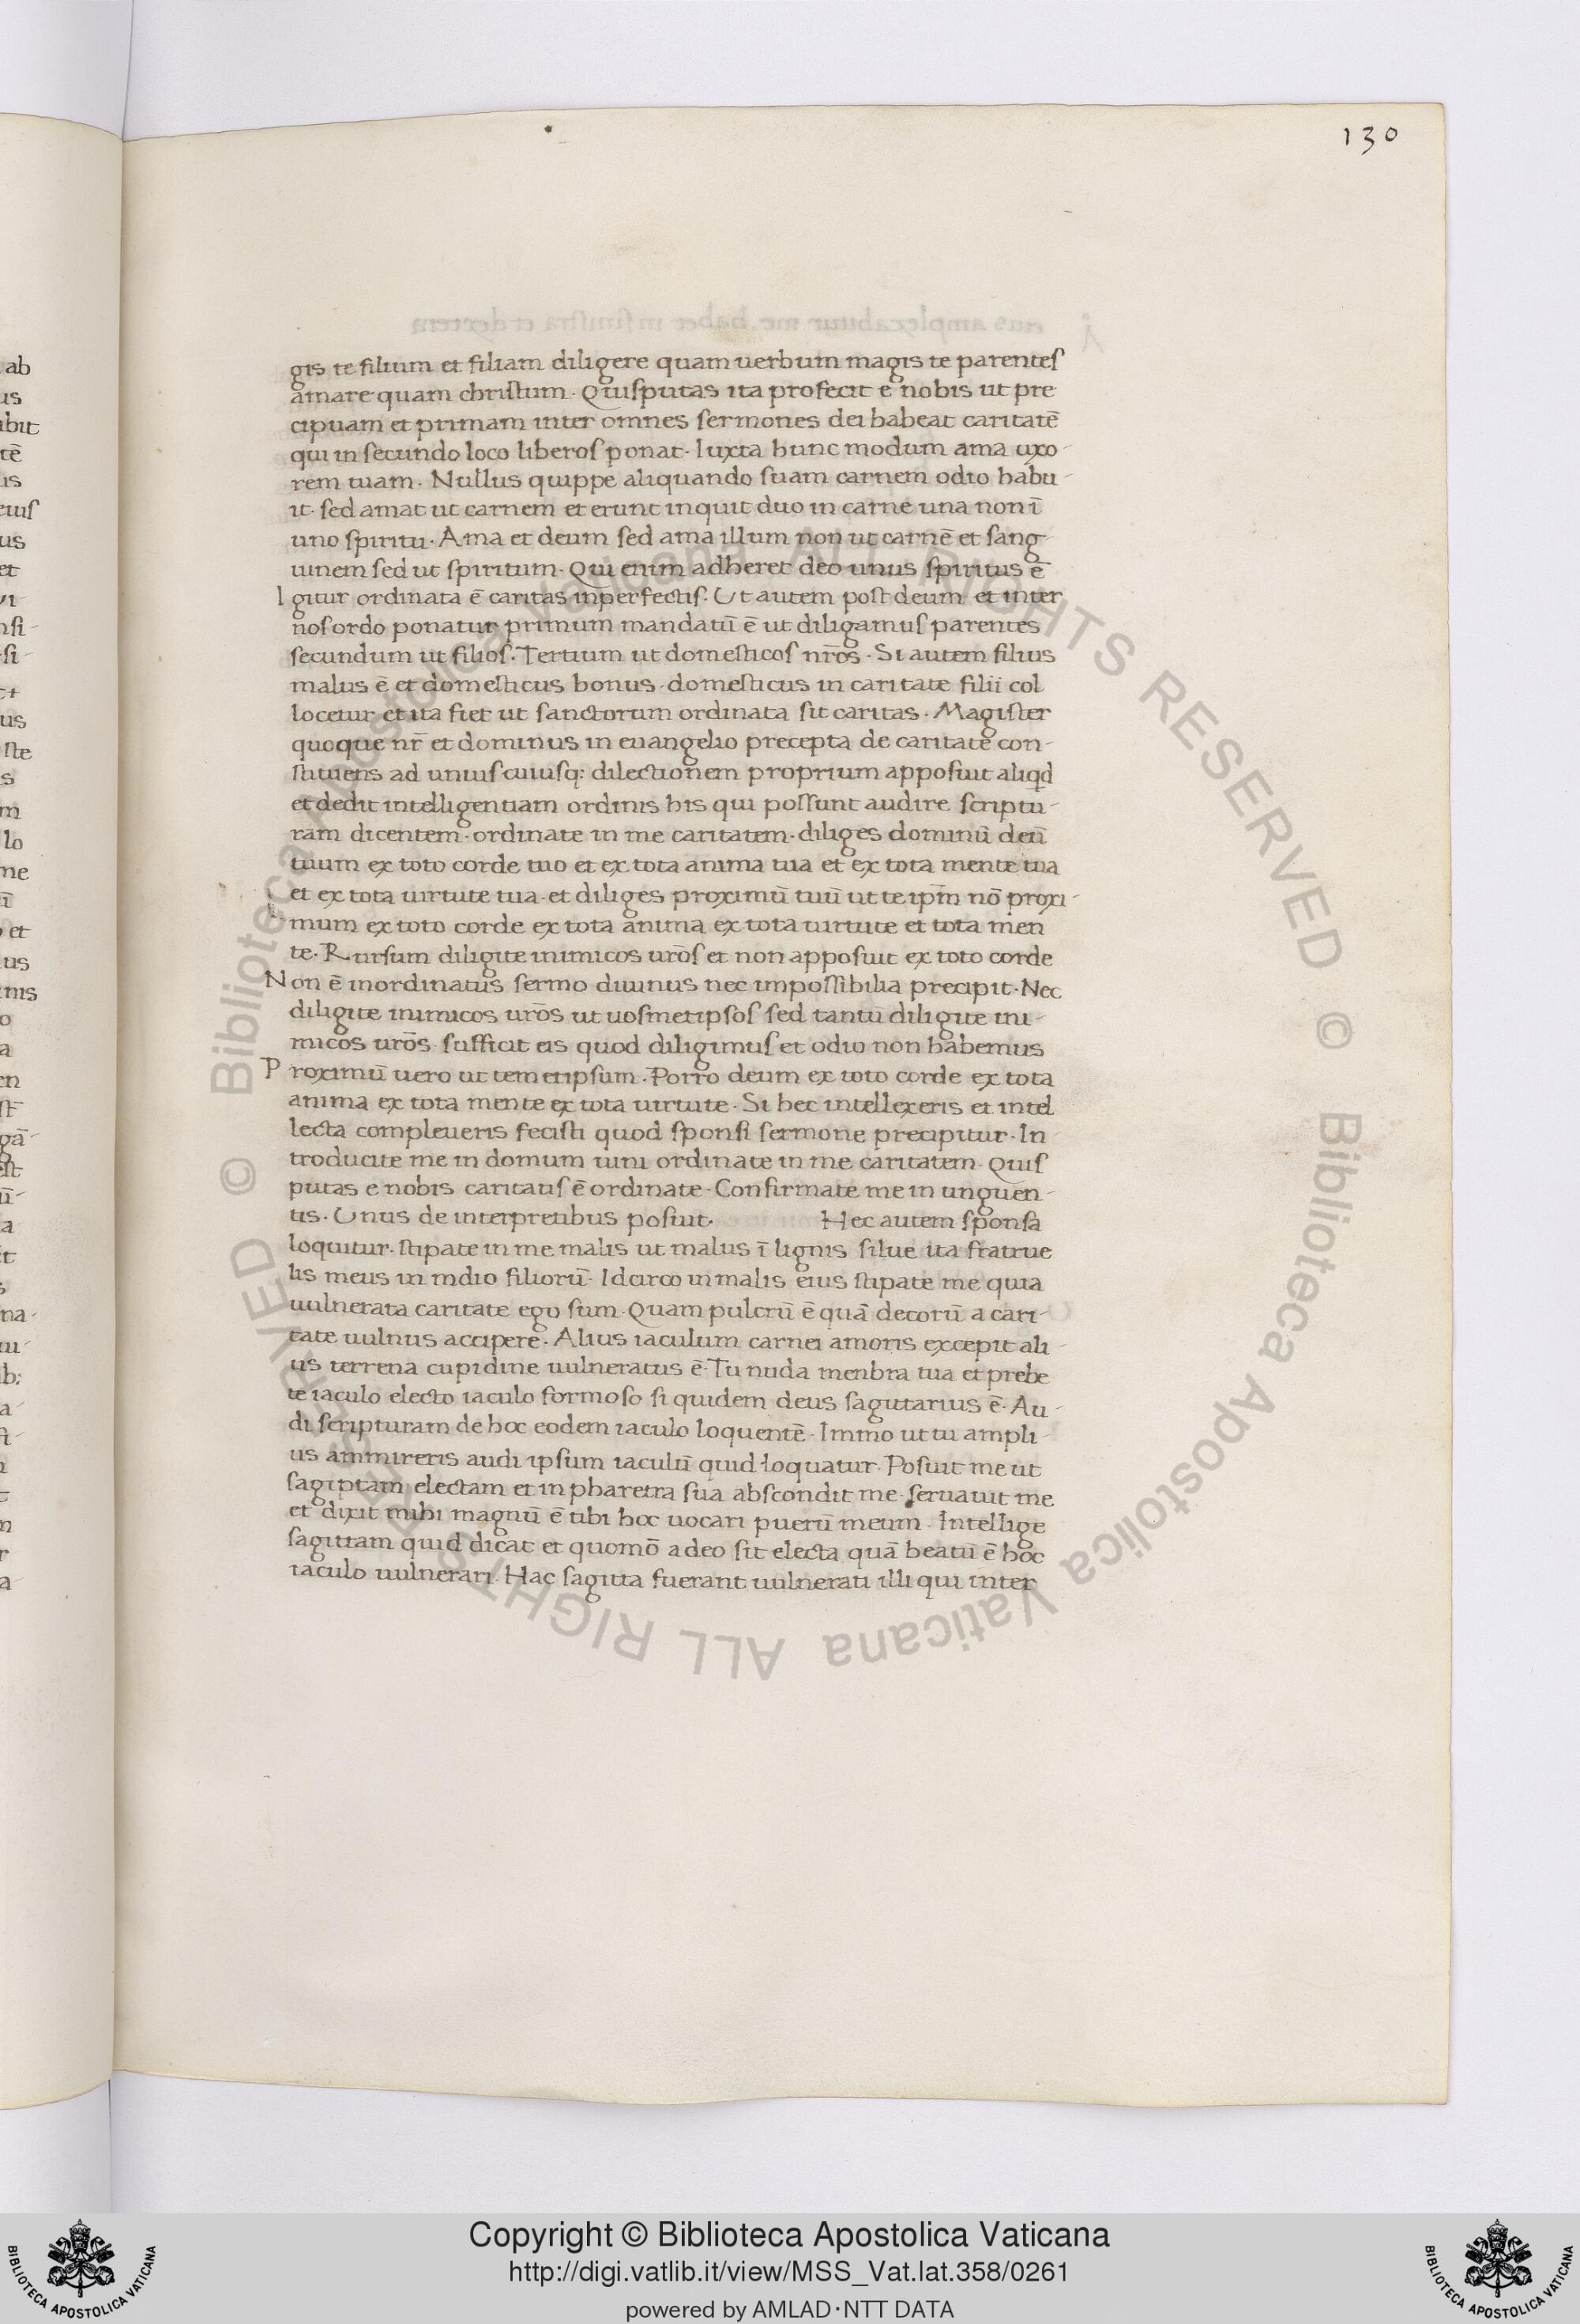 130
gis te filium et filiam diligere quam uerbum magis te parentes
amare quam christum. Quis putas ita profecit e nobis ut pre
cipuam et primam inter omnes sermones dei habeat caritatē
qui in secundo loco liberos ponat. Iuxta hunc modum ama uxo-
rem tuam. Nullus quippe aliquando suam carnem odio habu-
it. sed amat ut carnem et erunt inquit duo in carne una non ī
uno spiritu. Ama et deum sed ama illum non ut carnē et sang-
uinem sed ut spiritum. Qui enim adheret deo unus spiritus ē
Igitur ordinata ē caritas in perfectis. Ut autem post deum et inter
nos ordo ponatur primum mandatū ē ut diligamus parentes
secundum ut filios. Tertium ut domesticos nr̄os. Si autem filius
malus ē et domesticus bonus. domesticus in caritate filii col
locetur et ita fiet ut sanctorum ordinata sit caritas. Magister
quoque nr̄ et dominus in euangelio precepta de caritate con-
stituens ad uniuscuiusq: dilectionem proprium apposuit aliqd
et dedit intelligentiam ordinis his qui possunt audire scriptu-
ram dicentem. ordinate in me caritatem. diliges dominū deū
tuum ex toto corde tuo et ex tota anima tua et ex tota mente tua
et ex tota uirtute tua. et diliges proximū tuū ut te ip̄m nō proxi-
mum ex toto corde ex tota anima ex tota uirtute et tota men
te. Rursum diligite inimicos ur̄os et non apposuit ex toto corde
Non ē inordinatus sermo diuinus nec impossibilia precipit. Nec
diligite inimicos ur̄os ut uosmetipsos sed tantū diligite ini-
micos ur̄os. sufficit eis quod diligimus et odio non habemus
Proximū uero ut temetipsum. Porro deum ex toto corde ex tota
anima ex tota mente ex tota uirtute. Si hec intellexeris et intel
lecta compleueris fecisti quod sponsi sermone precipitur. In
troducite me in domum uini ordinate in me caritatem. Quis
putas e nobis caritatis ē ordinate. Confirmate me in unguen-
tis. Unus de interpretibus posiut. Hec autem sponsa
loquitur. stipate in me malis ut malus ī lignis silue ita fratrue
lis meus in mdio filiorū. Idcirco in malis eius stipate me quia
uulnerata caritate ego sum. Quam pulcrū ē quā decorū a cari-
tate uulnus accipere. Alius iaculum carnei amoris excepit ali-
us terrena cupidine uulneratus ē. Tu nuda menbra tua et prebe
te iaculo electo iaculo formoso si quidem deus sagittarius ē. Au-
di scripturam de hoc eodem iaculo loquentē. Immo ut tu ampli-
us ammireris audi ipsum iaculū quid loquatur. Posuit me ut
sagiptam electam et in pharetra sua abscondit me. seruauit me
et dixit mihi magnū ē tibi hoc uocari puerū meum. Intellige
sagittam quid dicat et quomō a deo sit electa quā beatū ē hoc
iaculo uulnerari. Hac sagitta fuerant uulnerati illi qui inter
© Biblioteca Apostolica Vaticana ALL RIGHTS RESERVED © Biblioteca Apostolica Vaticana ALL RIGHTS RESERVED
Copyright © Biblioteca Apostolica Vaticana
http://digi.vatlib.it/view/MSS_Vat.lat.358/0261
powered by AMLAD·NTT DATA
BIBLIOTECA APOSTOLICA VATICANA
BIBLIOTECA APOSTOLICA VATICANA